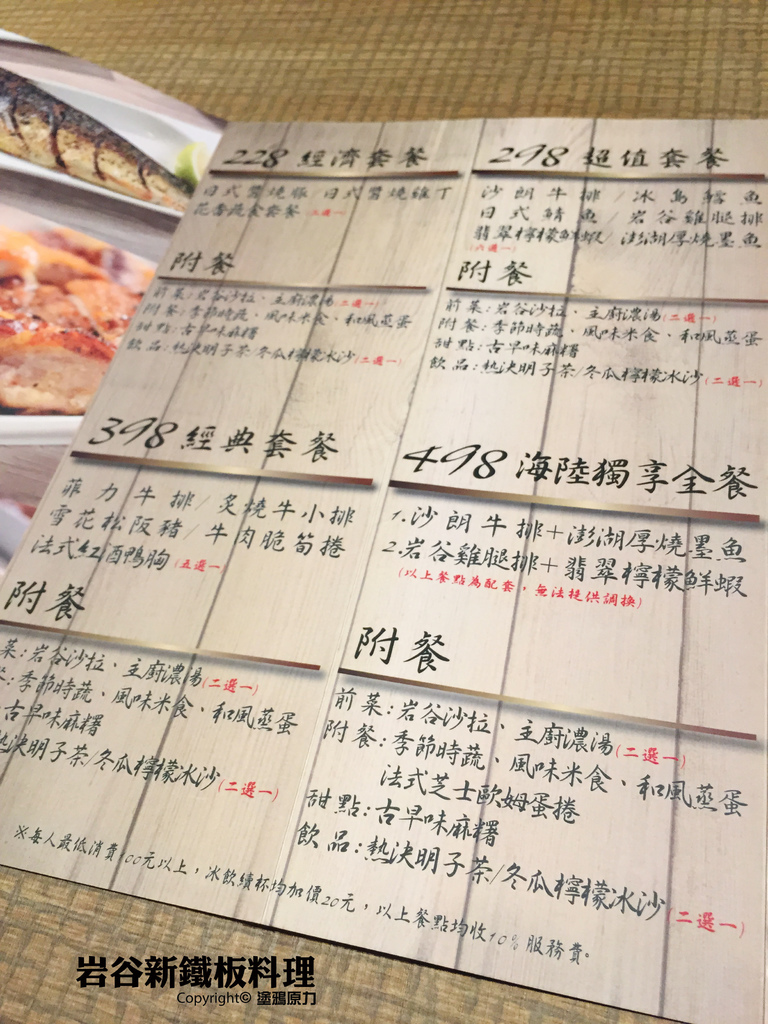 228 經濟套餐
日式醬燒豚/日式醬燒雞丁
花香蔬食套餐 (三選一)
附餐
前菜:岩谷沙拉、主廚濃湯(二選一)
附餐:季節時蔬、風味米食、和風蒸蛋
甜點:古早味麻糬
飲品:熱決明子茶/冬瓜檸檬冰沙(二選一)
298 超值套餐
沙朗牛排/冰島鱈魚
日式鯖魚/岩谷雞腿排
翡翠檸檬鮮蝦/澎湖厚燒墨魚
(六選一)
附餐
前菜:岩谷沙拉、主廚濃湯(二選一)
附餐:季節時蔬、風味米食、和風蒸蛋
甜點:古早味麻糬
飲品:熱決明子茶/冬瓜檸檬冰沙(二選一)
398 經典套餐
菲力牛排/炙燒牛小排
雪花松阪豬/牛肉脆筍捲
法式紅酒鴨胸 (五選一
附餐
菜:岩谷沙拉、主廚濃湯(二選一)
:季節時蔬、風味米食、和風蒸蛋
古早味麻糬
熱決明子茶/冬瓜檸檬冰沙(二選一)
498 海陸獨享全餐
1.沙朗牛排+澎湖厚燒墨魚
2.岩谷雞腿排+翡翠檸檬鮮蝦
(以上餐點為配套,無法提供調換)
附餐
前菜:岩谷沙拉、主廚濃湯(二選一)
附餐:季節時蔬、風味米食、和風蒸蛋
法式芝士歐姆蛋捲
甜點:古早味麻糬
飲品:熱決明子茶/冬瓜檸檬冰沙(二選一)
※每人最低消費100元以上,冰飲續杯均加價20元,以上餐點均收10%服務費。
岩谷新鐵板料理
Copyright© 塗鴉原力